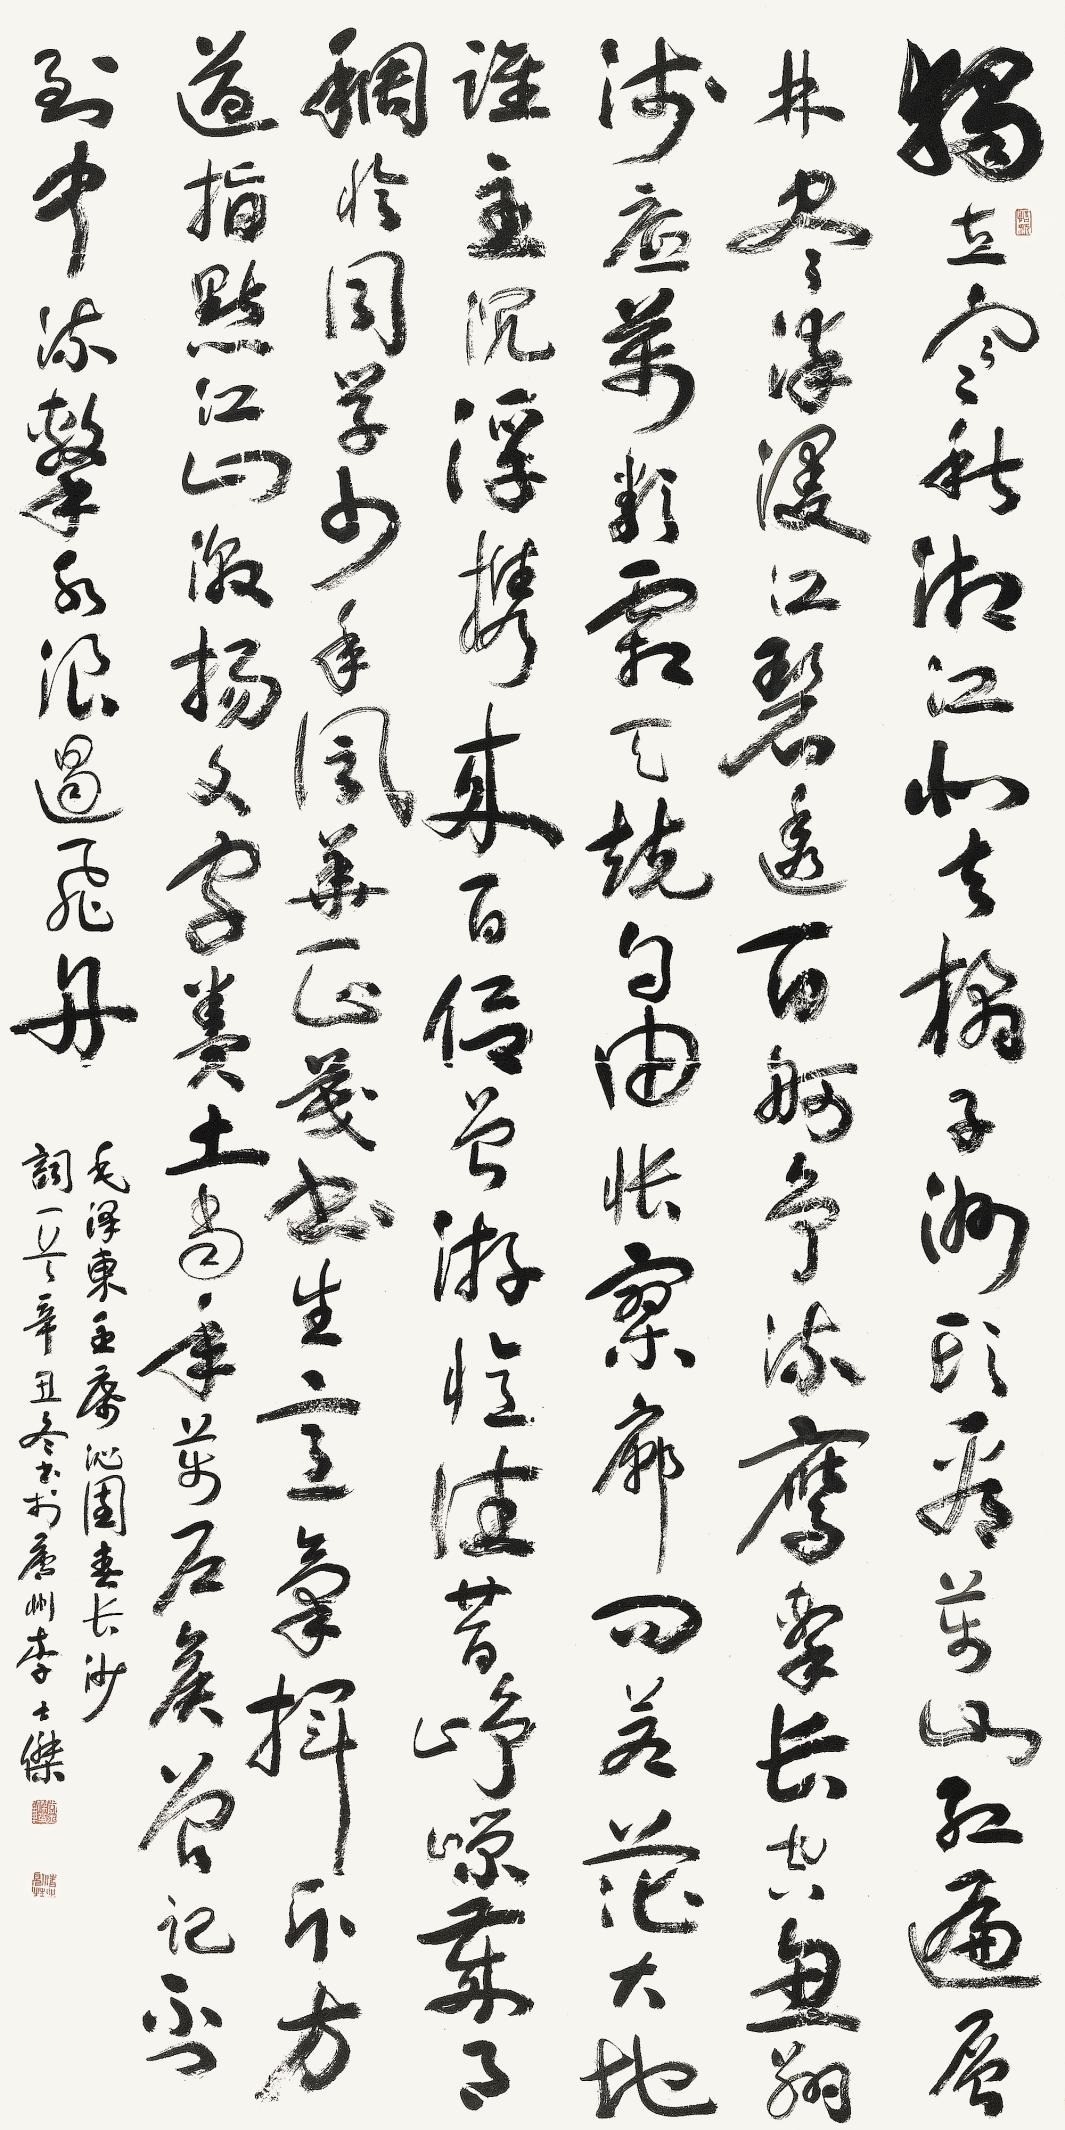 獨立寒秋湘江北去橘子洲头看萬山红遍層
林尽染漫江碧透百舸争流鹰擊長空魚翔
浅底萬類霜天競自由悵寥廓问蒼茫大地
誰主沉浮携來百侣曾游憶往昔崢嶸歲月
稠恰同学少年風華正茂书生意氣揮斥方
遒指點江山激揚文字糞土當年萬户侯曾记否
到中流擊水浪遏飛舟
毛澤東主席沁園春長沙
詞一首辛丑冬书於廣州李士傑